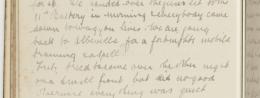 for it. We handed over the guns to the
11th Battery in morning & everybody came
down to wagon lines. We are going
back to Albeville for a fortnights mobile
training & a spell!
Fritz tried to come over the other night
on a small front but did no good
Otherwise everything was quiet